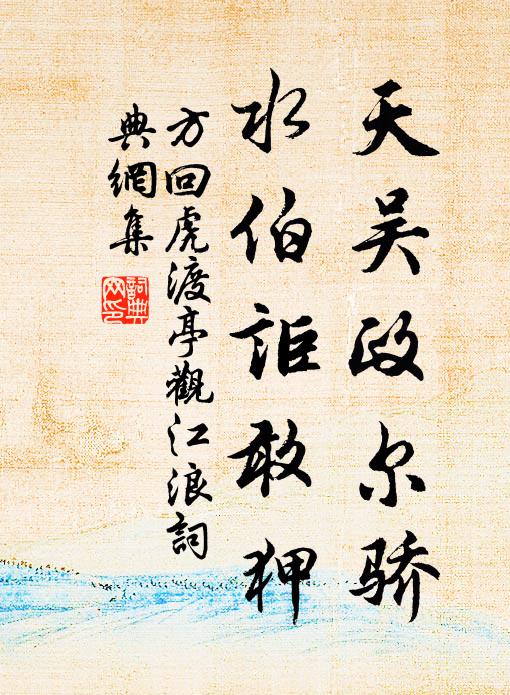 天吴政尔骄
水伯詎敢狎
方回虎渡亭觀江浪詞
典網集
詞典網印